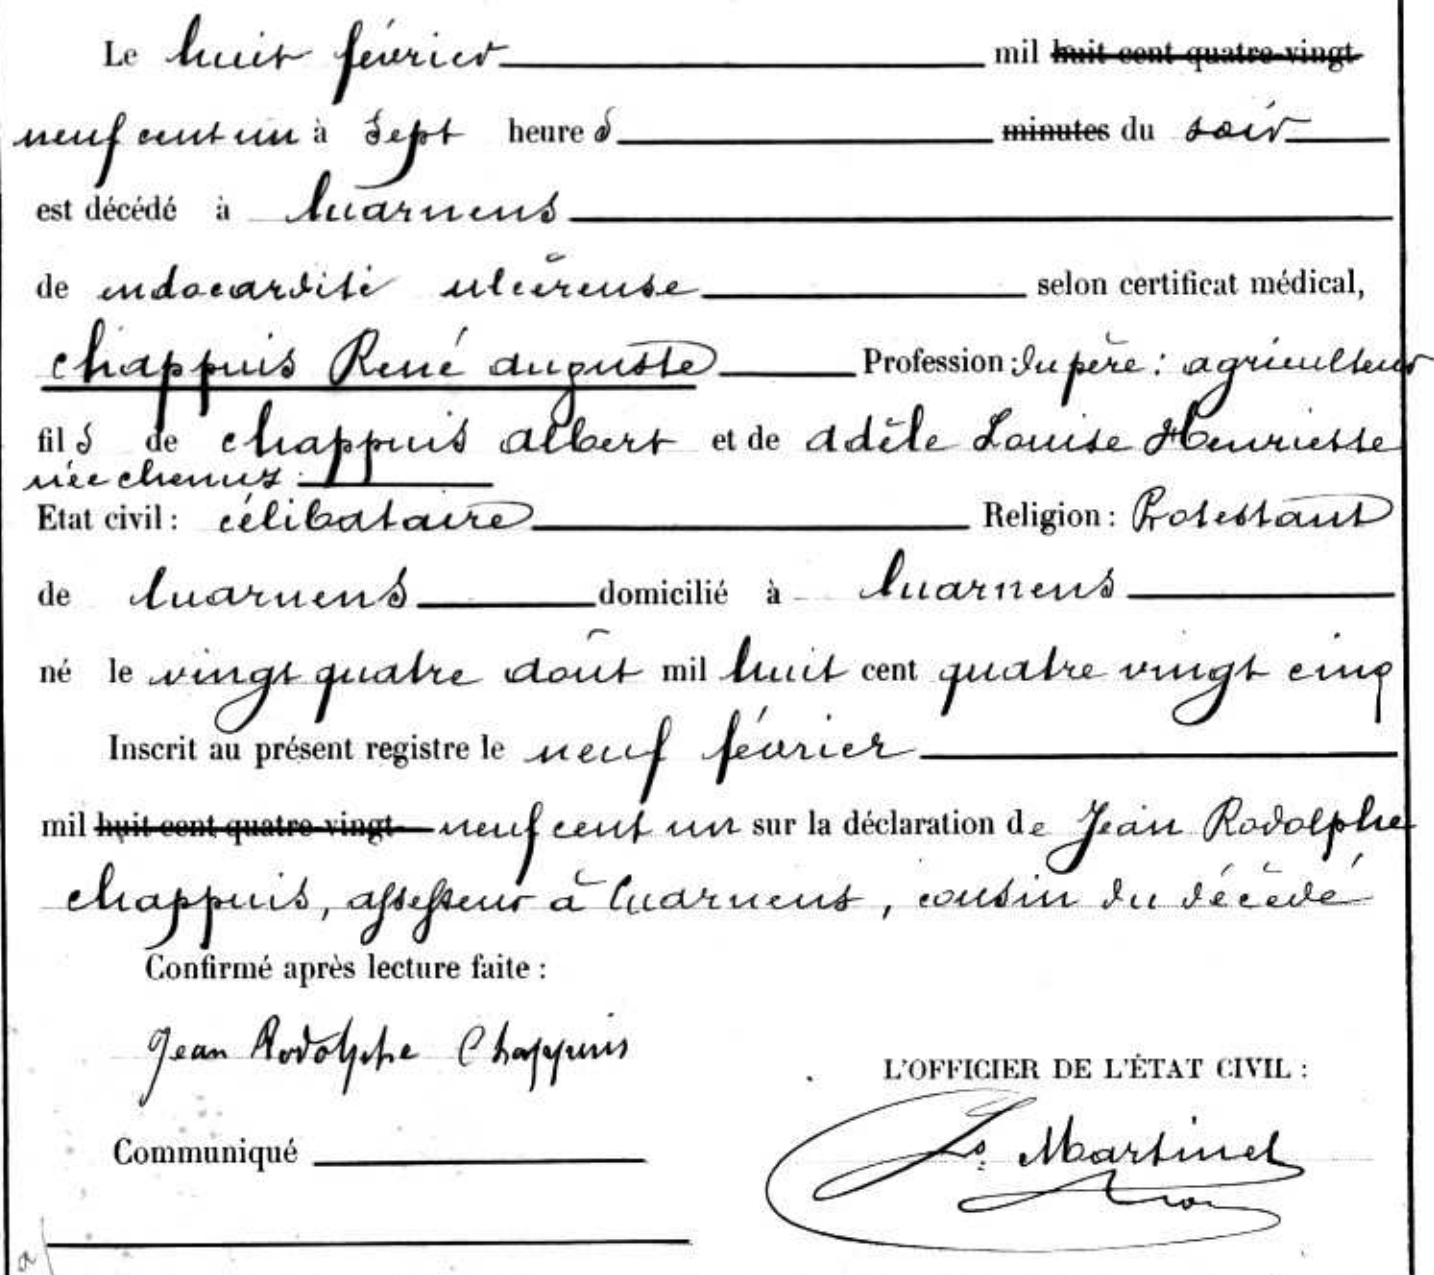 Le huit février mil ~~huit cent quatre-vingt~~
neuf cent un à sept heures ~~minutes~~ du soir
est décédé à Cuarnens
de endocardite ulcéreuse selon certificat médical,
Chappuis René Auguste Profession : du père : agriculteur
fils de Chappuis Albert et de Adèle Louise Henriette
née Chenuz
Etat civil : célibataire Religion : Protestant
de Cuarnens domicilié à Cuarnens
né le vingt quatre août mil huit cent quatre vingt cinq
Inscrit au présent registre le neuf février
mil ~~huit cent quatre-vingt~~ neuf cent un sur la déclaration de Jean Rodolphe
Chappuis, assesseur à Cuarnens, cousin du décédé
Confirmé après lecture faite :
Jean Rodolphe Chappuis
L'OFFICIER DE L'ÉTAT CIVIL :
Ls. Martinet
Communiqué